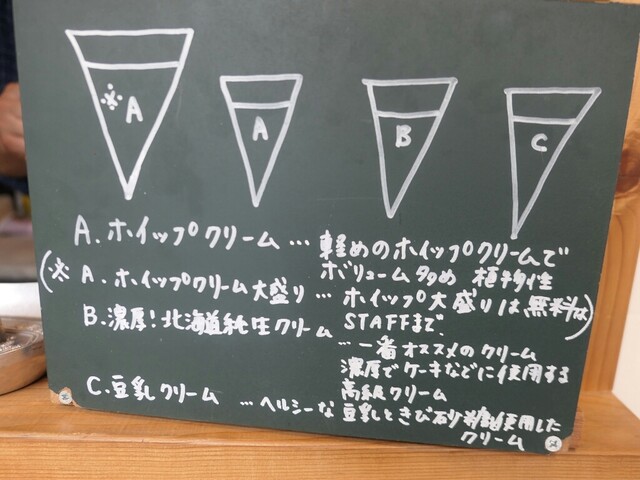 ※A
A
B
C
A. ホイップクリーム … 軽めのホイップクリームで
ボリューム多め 植物性
(※ A. ホイップクリーム大盛り … ホイップ大盛りは無料
STAFFまで.
B. 濃厚!北海道純生クリーム
…一番オススメのクリーム
濃厚でケーキなどに使用する
高級クリーム
C. 豆乳クリーム … ヘルシーな豆乳ときび砂糖使用した
クリーム